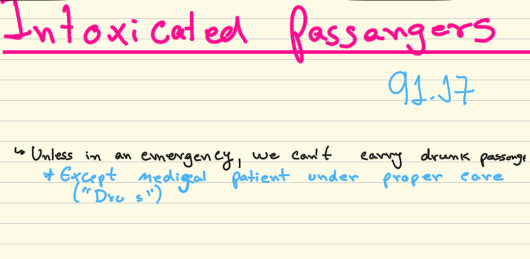 Intoxicated Passangers
91.17
↳ Unless in an emergency, we can't carry drunk
* Except medical patient under proper care